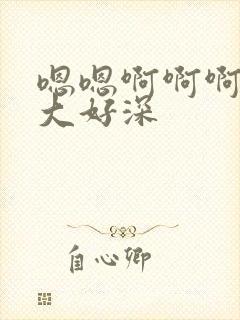 嗯嗯啊啊啊
大好深
自心卿